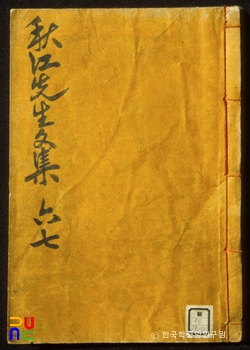 秋江先生文集 六七
ⓒ 한국학중앙연구원